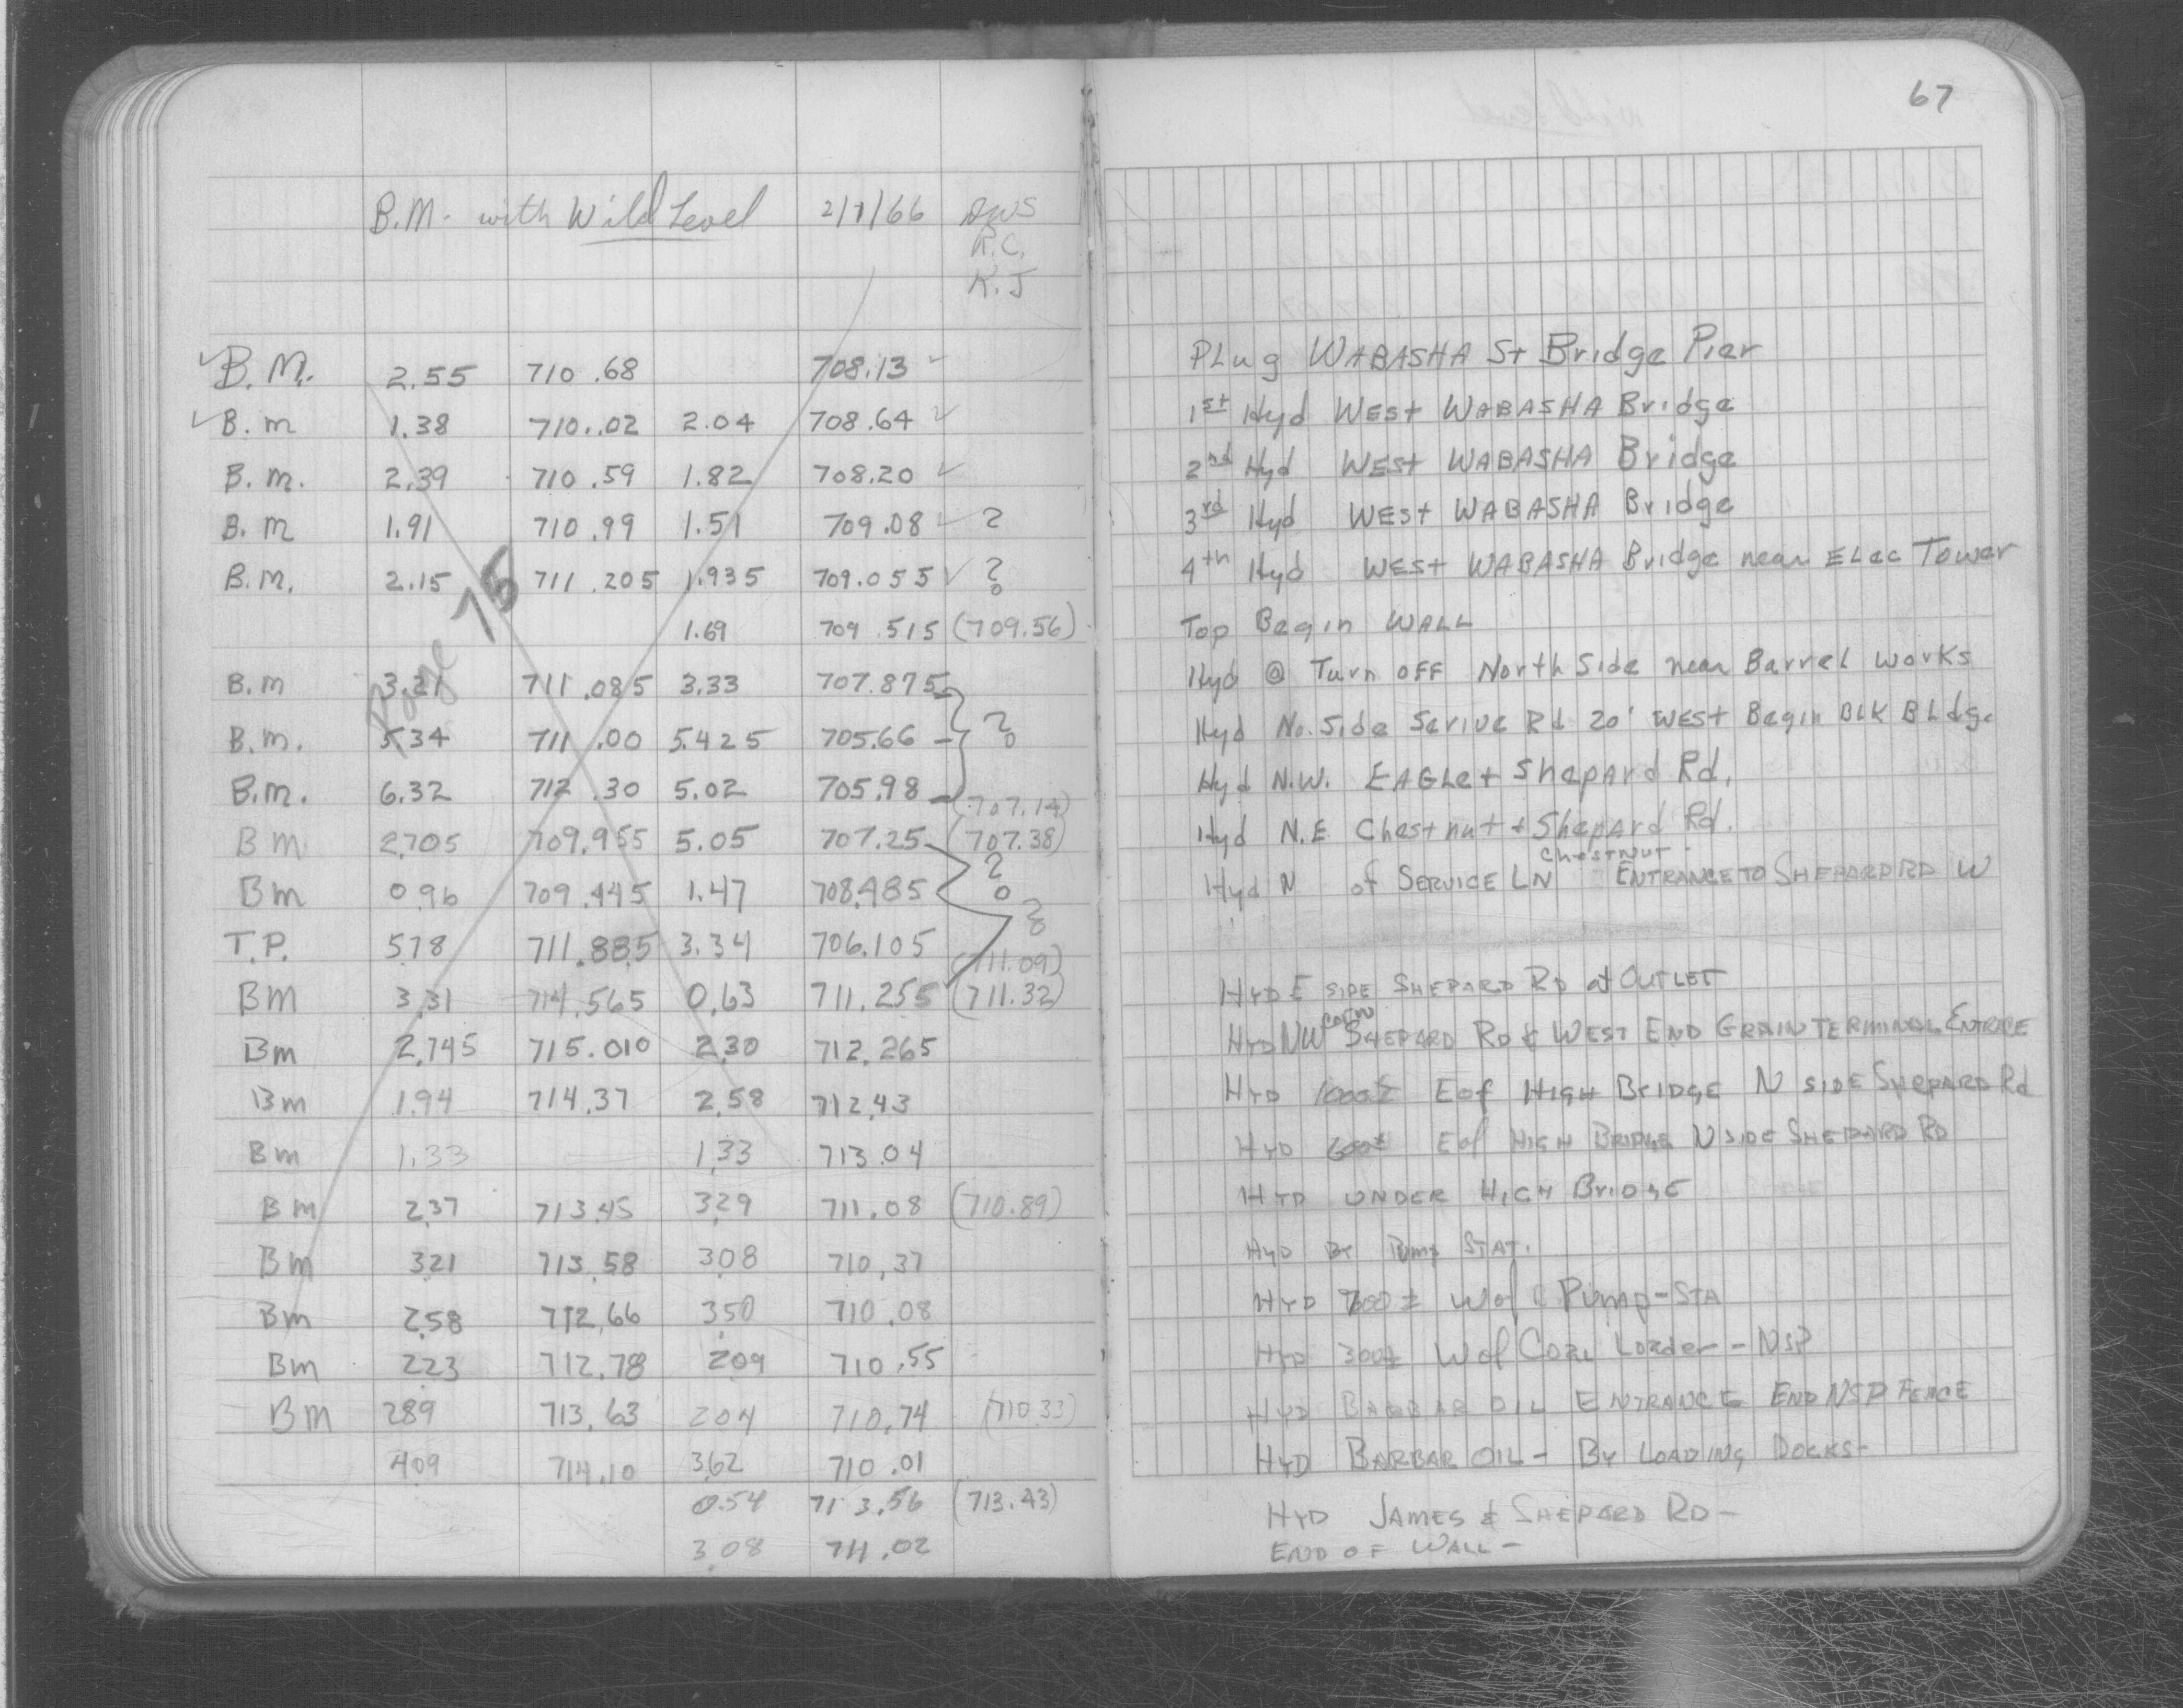 67
B.M. with Wild Level 2/1/66 DWS
R.C.
K.J
B.M. 2.55 710.68 708.13 ✓ PLug WABASHA St Bridge Pier
B.m 1.38 710.02 2.04 708.64 ✓ 1st Hyd WEST WABASHA Bridge
B.m. 2.39 710.59 1.82 708.20 ✓ 2nd Hyd WEST WABASHA Bridge
B.m 1.91 710.99 1.51 709.08 ✓ ? 3rd Hyd WEST WABASHA Bridge
B.m. 2.15 711.205 1.935 709.055 ✓ ? 4th Hyd WEST WABASHA Bridge near ELec Tower
1.69 709.515 (709.56) Top Begin WALL
Page 75
B.m 3.21 711.085 3.33 707.875 Hyd @ Turn OFF North Side near Barrel works
B.m. 5.34 711.00 5.425 705.66 ? Hyd No. Side Serive Rd 20' WEST Begin BLK BLdg.
B.m. 6.32 712.30 5.02 705.98 Hyd N.W. EAGLE + Shepard Rd.
(707.14)
Bm 2.705 709.955 5.05 707.25 (707.38) Hyd N.E Chestnut + Shepard Rd.
Bm 0.96 709.445 1.47 708.485 ? Hyd N of SERVICE LN CHESTNUT ENTRANCE TO SHEPARD RD W
T.P. 5.78 711.885 3.34 706.105 ?
(711.09)
Bm 3.31 714.565 0.63 711.255 (711.32) HYD E SIDE SHEPARD RD at OUTLET
Bm 2.745 715.010 2.30 712.265 HYD NW SHEPARD RD & WEST END GRAIN TERMINAL ENTRCE
Bm 1.94 714.37 2.58 712.43 HYD 1000± E of HIGH BRIDGE N SIDE SHEPARD Rd
Bm 1.33 1.33 713.04 HYD 600± E of HIGH BRIDGE N SIDE SHEPARD RD
Bm 2.37 713.45 3.29 711.08 (710.89) HYD UNDER HIGH BRIDGE
Bm 3.21 713.58 3.08 710.37 HYD BY Pump STAT.
Bm 2.58 712.66 3.50 710.08 HYD 700± W of Pump-STA
Bm 2.23 712.78 2.09 710.55 HYD 300± W of COAL LOADER - NSP
Bm 2.89 713.63 2.04 710.74 (710.33) HYD BARBAR OIL ENTRANCE END NSP FENCE
4.09 714.10 3.62 710.01 HYD BARBAR OIL - BY LOADING DOCKS-
0.54 713.56 (713.43) HYD JAMES & SHEPARD RD -
3.08 711.02 END OF WALL -